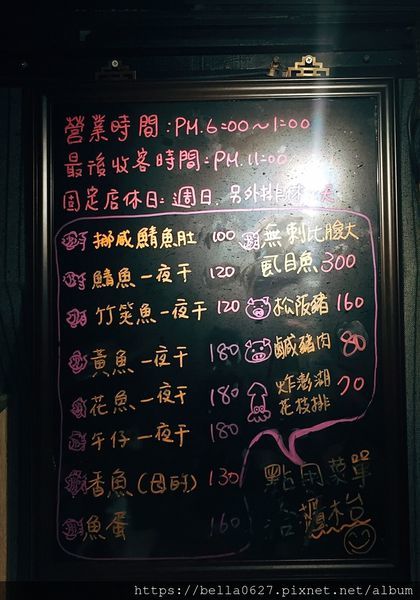 營業時間:PM.6:00～1:00
最後收客時間:PM.11:00
固定店休日:週日,另外排休一天
挪威鯖魚肚 100
鯖魚一夜干 120
竹筴魚一夜干 120
黃魚一夜干 180
花魚一夜干 180
午仔一夜干 180
香魚(母的) 130
魚蛋 160
無刺比臉大
虱目魚 300
松阪豬 160
鹹豬肉 80
炸澎湖
花枝排 70
點用菜單
洽櫃台
https://bella0627.pixnet.net/album